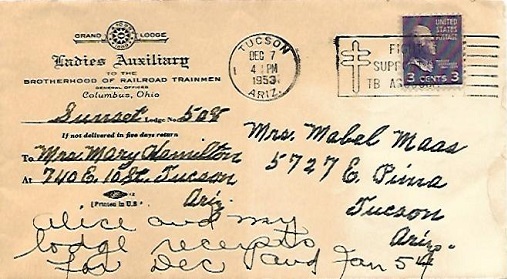 GRAND LODGE
Ladies Auxiliary
TO THE
BROTHERHOOD OF RAILROAD TRAINMEN
GENERAL OFFICES
Columbus, Ohio
Sunset Lodge No. 508
If not delivered in five days return
To Mrs. Mary Hamilton
At 740 E. 10 St. Tucson
Ariz.
[Printed in U.S.A.]
Alice and my
lodge receipts
for Dec and Jan 54
TUCSON
DEC 7
4 PM
1953
ARIZ.
FIGHT
SUPPORT
TB
UNITED
STATES
POSTAGE
3 CENTS 3
Mrs. Mabel Maas
5727 E. Pima
Tucson
Ariz.